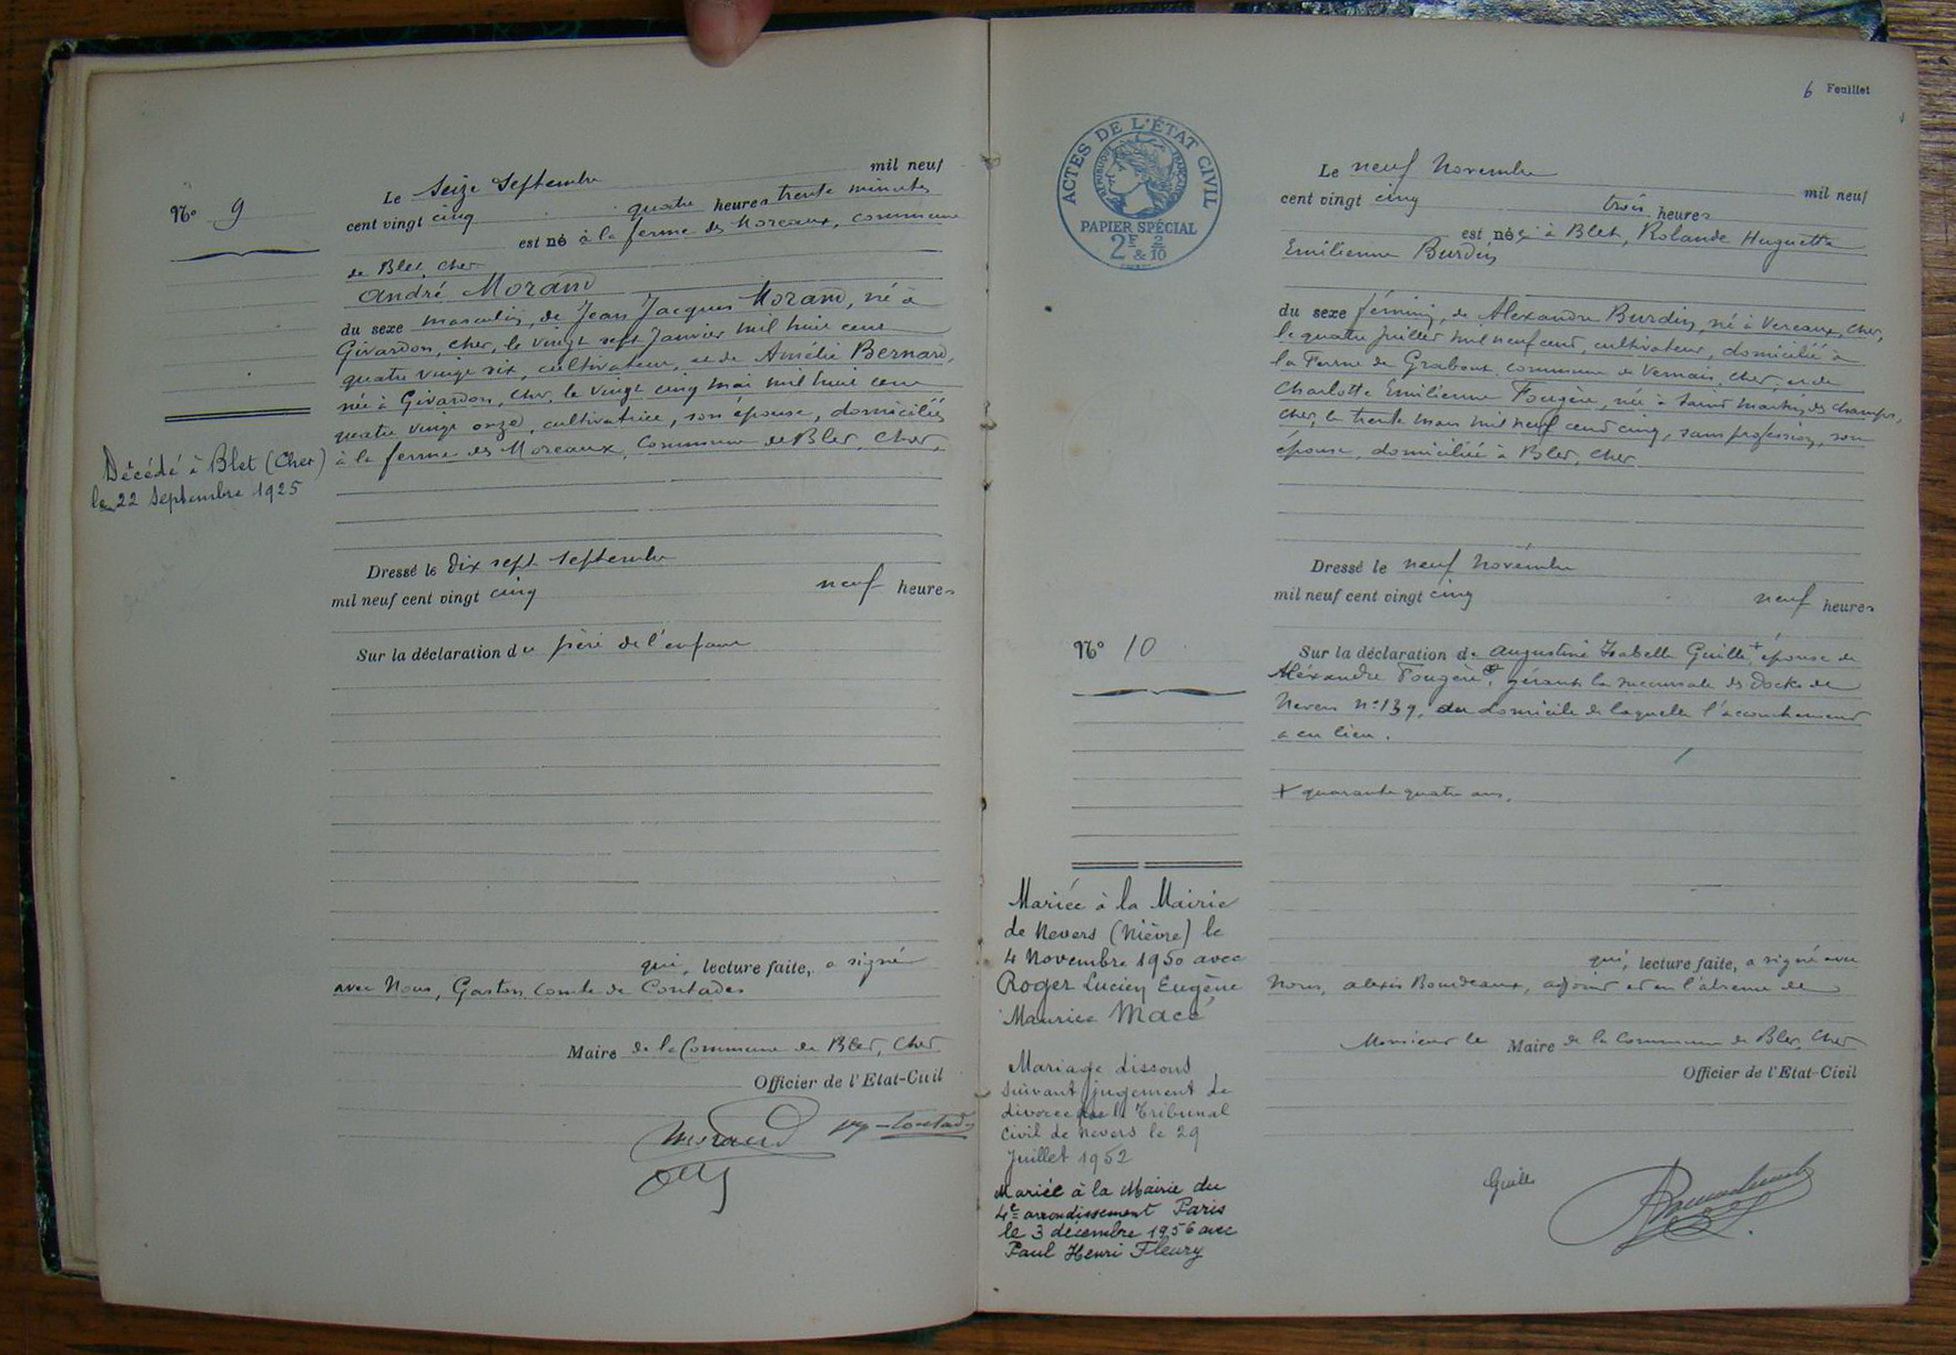 Nº 9
Le Seize Septembre mil neuf
cent vingt cinq quatre heures trente minutes
est né à la ferme des Moreaux, commune
de Blet, Cher
André Morand
du sexe masculin, de Jean Jacques Morand, né à
Givardon, Cher, le vingt sept Janvier mil huit cent
quatre vingt six, cultivateur, et de Amélie Bernard,
née à Givardon, Cher, le vingt cinq mai mil huit cent
quatre vingt onze, cultivatrice, son épouse, domiciliés
à la ferme des Moreaux, Commune de Blet, Cher,
Décédé à Blet (Cher)
le 22 Septembre 1925
Dressé le dix sept Septembre
mil neuf cent vingt cinq neuf heures
Sur la déclaration du père de l'enfant
qui, lecture faite, a signé
avec Nous, Gaston Comte de Contades
Maire de la Commune de Blet, Cher
Officier de l'Etat-Civil
Morand
6 Feuillet
ACTES DE L'ÉTAT CIVIL
RÉPUBLIQUE FRANÇAISE
PAPIER SPÉCIAL
2F & 2/10
Le neuf Novembre mil neuf
cent vingt cinq trois heures
est née à Blet, Rolande Huguette
Emilienne Burdin
du sexe féminin, de Alexandre Burdin, né à Vereaux, Cher,
le quatre Juillet mil neuf cent, cultivateur, domicilié à
la Ferme de Grabout commune de Vernais, Cher, et de
Charlotte Emilienne Fougère, née à Saint Martin des Champs,
Cher, le trente mars mil neuf cent cinq, sans profession, son
épouse, domiciliée à Blet, Cher
Dressé le neuf Novembre
mil neuf cent vingt cinq neuf heures
Nº 10
Sur la déclaration de Augustine Isabelle Guille + épouse de
Aléxandre Fougère, gérante la succursale des Docks de
Nevers nº 139, au domicile de laquelle l'accouchement
a eu lieu.
+ quarante quatre ans.
qui, lecture faite, a signé avec
Nous, Alexis Bourdeaux, adjoint et en l'absence de
Monsieur le Maire de la Commune de Blet, Cher
Officier de l'Etat-Civil
Guille
Mariée à la Mairie
de Nevers (Nièvre) le
4 Novembre 1950 avec
Roger Lucien Eugène
Maurice Macé
Mariage dissous
suivant jugement de
divorce par le Tribunal
Civil de Nevers le 29
Juillet 1952
Mariée à la Mairie du
4e arrondissement Paris
le 3 décembre 1956 avec
Paul Henri Fleury